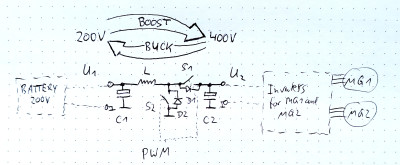 BOOST
200V
400V
BUCK
U1
L
S1
U2
BATTERY
200V
C1
S2
D1
D2
C2
Inverters
for MG1 and
MG2
MG1
MG2
PWM